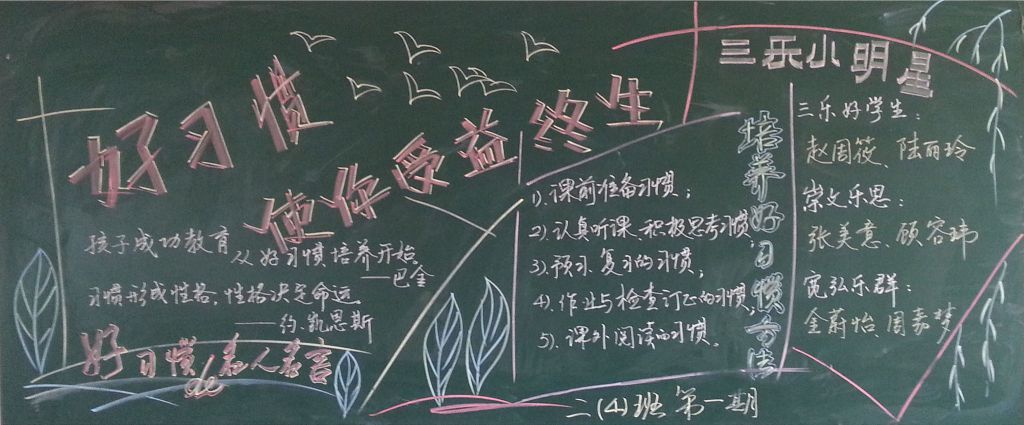 好习惯
使你受益终生
孩子成功教育从好习惯培养开始
——巴金
习惯形成性格，性格决定命运
——约.凯恩斯
好习惯de名人名言
1).课前准备习惯；
2).认真听课、积极思考习惯
3).预习、复习的习惯；
4).作业与检查订正的习惯
5).课外阅读的习惯。
培养好习惯方法
三乐小明星
三乐好学生：
赵周筱、陆丽玲
崇文乐思：
张美意、顾容玮
宽弘乐群：
金蔚怡、周嘉梦
二(4)班 第一期